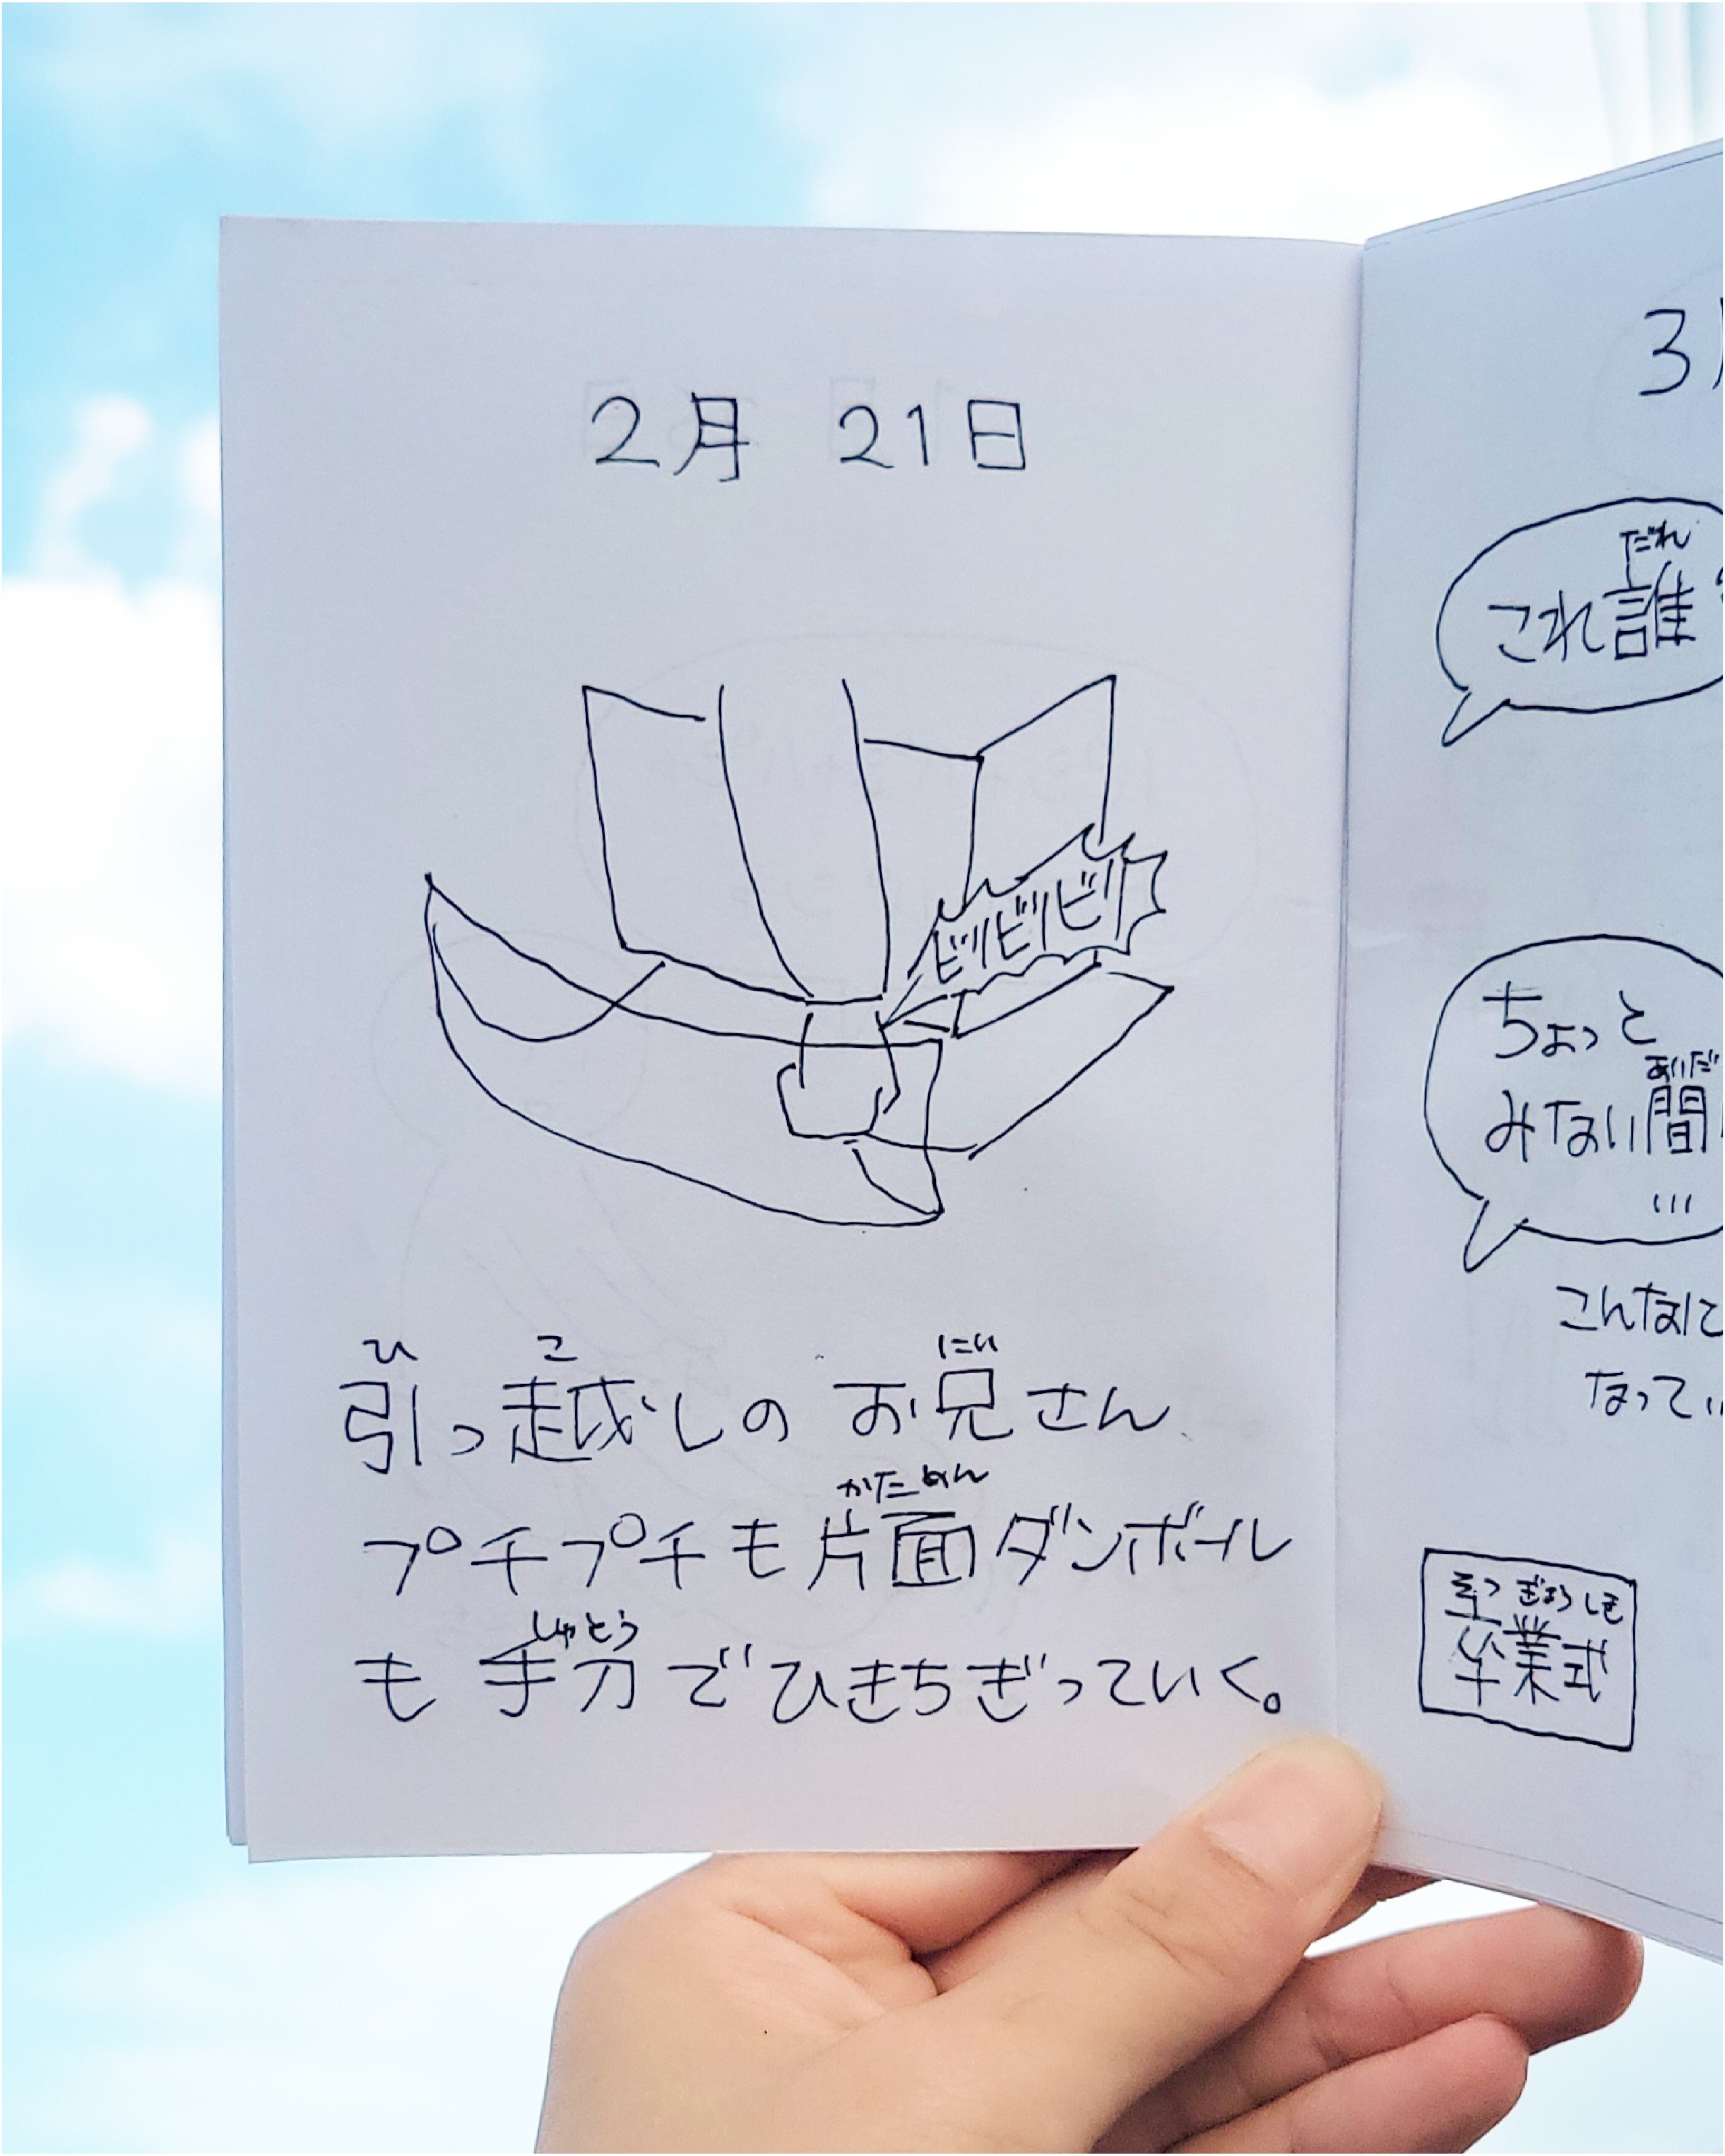 2月 21日
ビリビリビリ
ひ こ にい
引っ越しの お兄さん
かためん
プチプチも片面ダンボール
しゅとう
も 手刀でひきちぎっていく。
3
だれ
これ誰
ちょっと
あいだ
みない間
...
こんなに
なってい
そつぎょうしき
卒業式